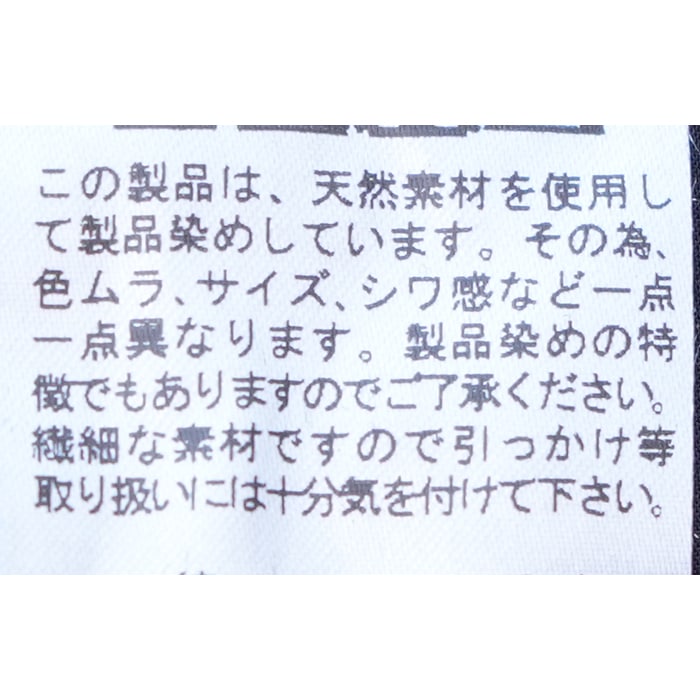 この製品は、天然素材を使用し
て製品染めしています。その為、
色ムラ、サイズ、シワ感など一点
一点異なります。製品染めの特
徴でもありますのでご了承ください。
繊細な素材ですので引っかけ等
取り扱いには十分気を付けて下さい。